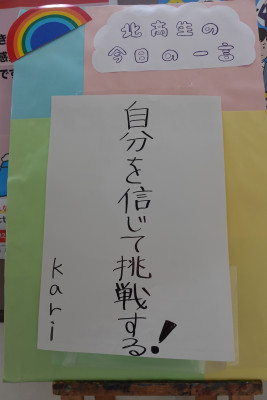 北高生の
今日の一言
自分を信じて挑戦する!
kari